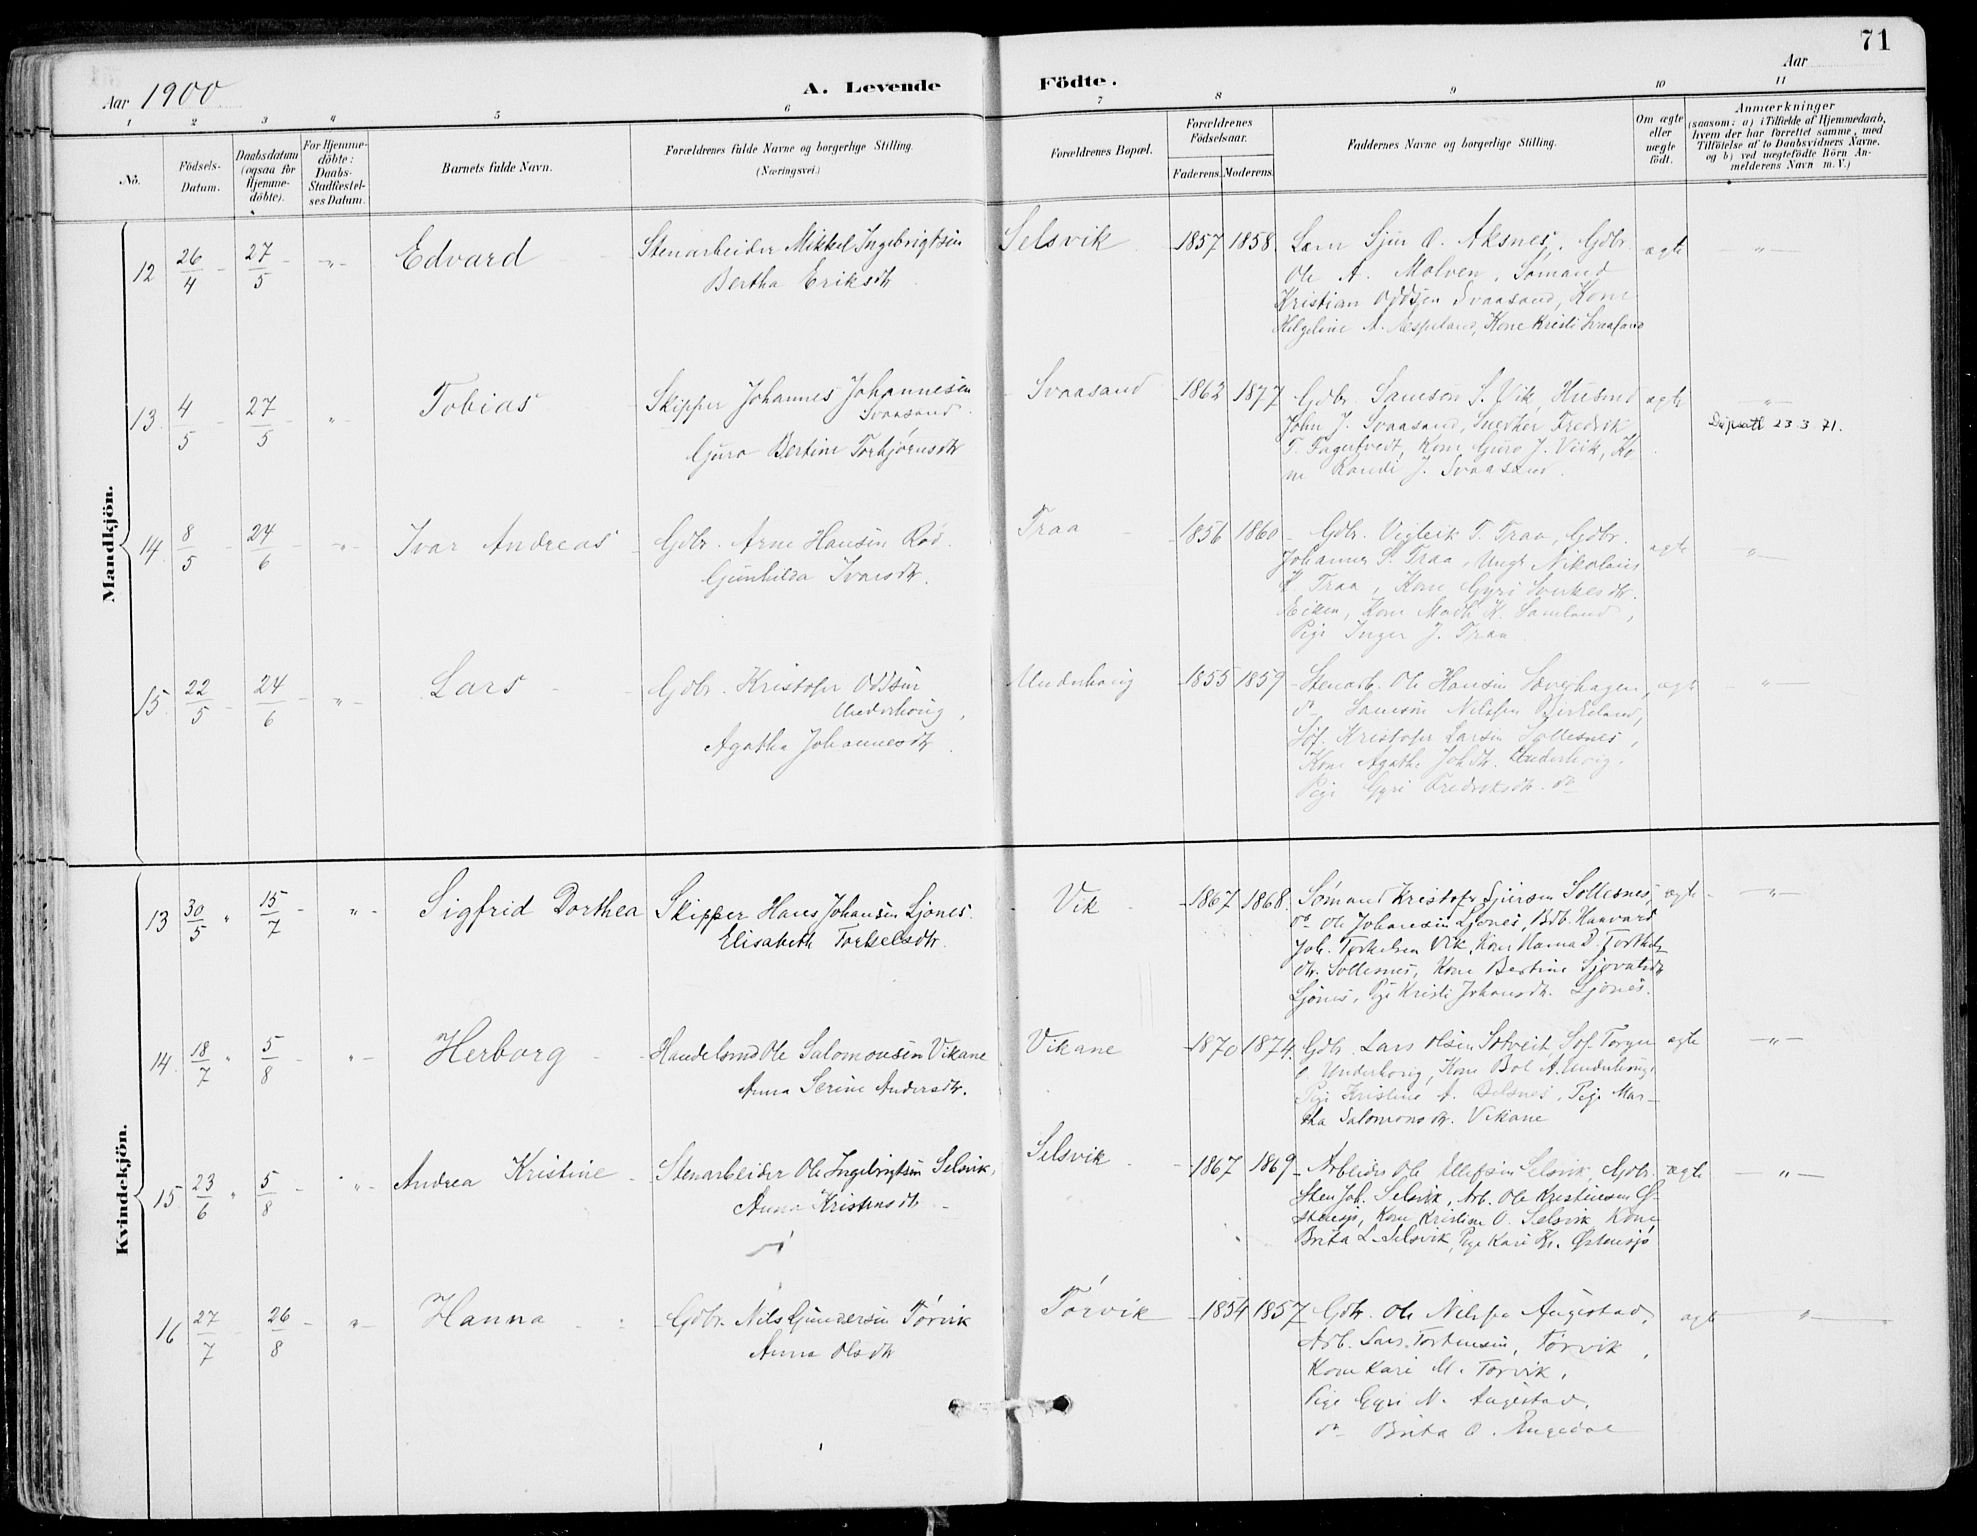 71
Aar 1900
A. Levende
Födte.
Aar
1 2 3 4 5 6 7 8 9 10 11
No.
Födsels-
Datum.
Daabsdatum
(ogsaa for
Hjemme-
döbte).
For Hjemme-
döbte:
Daabs-
Stadfæstel-
ses Datum.
Barnets fulde Navn.
Forældrenes fulde Navne og borgerlige Stilling.
(Næringsvei.)
Forældrenes Bopæl.
Forældrenes
Födselsaar.
Faderens. Moderens.
Faddernes Navne og borgerlige Stilling.
Om ægte
eller
uægte
födt.
Anmærkninger
(saasom: a) i Tilfælde af Hjemmedaab,
hvem der har forrettet samme, med
Tilföielse af to Daabsvidners Navne,
og b) ved uægtefödte Börn An-
melderens Navn m. V.)
Mandkjön.
12 26/4 27/5 -"- Edvard Stenarbeider Mikkel Ingebrigtsen
Bertha Eriksdtr
Selsvik 1857 1858. Sjur O. Aksnes, Gdbr.
Ole A. Molven, Sømand
Kristian Oddsen Svaasand, Kone
Helgeline A. Aespeland, Kone Kristi Svaasand
ægte -"-
13. 4/5 27/5 " Tobias Skipper Johannes Johannesen
Svaasand
Guro Bertine Torbjørnsdtr
Svaasand 1862 1877 Gdbr. Samson S. Vik, Husmd
John J. Svaasand, Fredrik
T. Fagertvedt, Kone Guro J. Viik, Ko-
ne Randi J. Svaasand.
ægte -"-
Dåpsatt. 23.3 71.
14. 8/5 24/6 -"- Ivar Andreas Gdbr. Arne Hansen Rød.
Gunhilda Ivarsdtr.
Traa 1856 1860 Gdbr. Vigleik T. Traa, Gdbr.
Johannes S. Traa, Ungk Nikolaus
K Traa, Kone Gyri Sverkesdtr.
Eiken, Kone Marth K. Samland,
Pige Inger J. Traa
ægte "
15. 22/5 24/6 -"- Lars Gdbr. Kristofer Oddsen
Underhoug,
Agatha Johannesdtr.
Underhoug 1855 1859 Stenarb. Ole Hansen
do Samson Nilsen Birkeland,
Kristofer Larsen Sollesnes,
Kone Agathe Joh.dtr. Underhoug.
Pige Gyri Fredriksdtr. do
ægte -"-
Kvindekjön.
13 30/5 15/7 -"- Sigfrid Dorthea Skipper Hans Johansen Ljones.
Elisabeth Torkelsdtr.
Vik 1867 1868. Sømand Kristofer Sjursen Sollesnes,
do Ole Johansen Ljones, Haavard
Joh. Torkelsen Vik, Kone Hanna D. Torkels-
dtr. Sollesnes, Kone Bertine Sjovatsdtr
Ljones, Pige Kristi Johansdtr. Ljones.
ægte -"-
14. 18/7 5/8 -"- Herborg Handelsmd Ole Salomonsen Vikane
Anna Serine Andersdtr.
Vikane 1870 1874. Gdbr. Lars Olsen Sotveit,
Underhoug, Kone Bol A. Underhoug,
Pige Kristine A. Belsnes, Pige Mar-
tha Salomonsdtr. Vikane
ægte -"-
15 23/6 5/8 -"- Andrea Kristine Stenarbeider Ole Ingebrigtsen Selsvik,
Anna Kristensdtr.
Selsvik 1867 1869 Arbeider Ole Ellefsen Selsvik, Gdbr.
Sten Joh. Selsvik, Arb. Ole Kristensen Ø-
stensjø, Kone Kristine O. Selsvik, Kone
Brita L. Selsvik, Pige Kari Kr. Østensjø
ægte -"-
16 27/7 26/8 -"- Hanna Gdbr. Nils Gundersen Tørvik
Anna Olsdtr
Tørvik 1854 1857 Gdbr. Ole Nilsen Augestad,
Arb. Lars Torstensen, Tørvik,
Kone Kari M. Tørvik,
Pige Gyri N. Augestad,
do Brita O.
ægte "